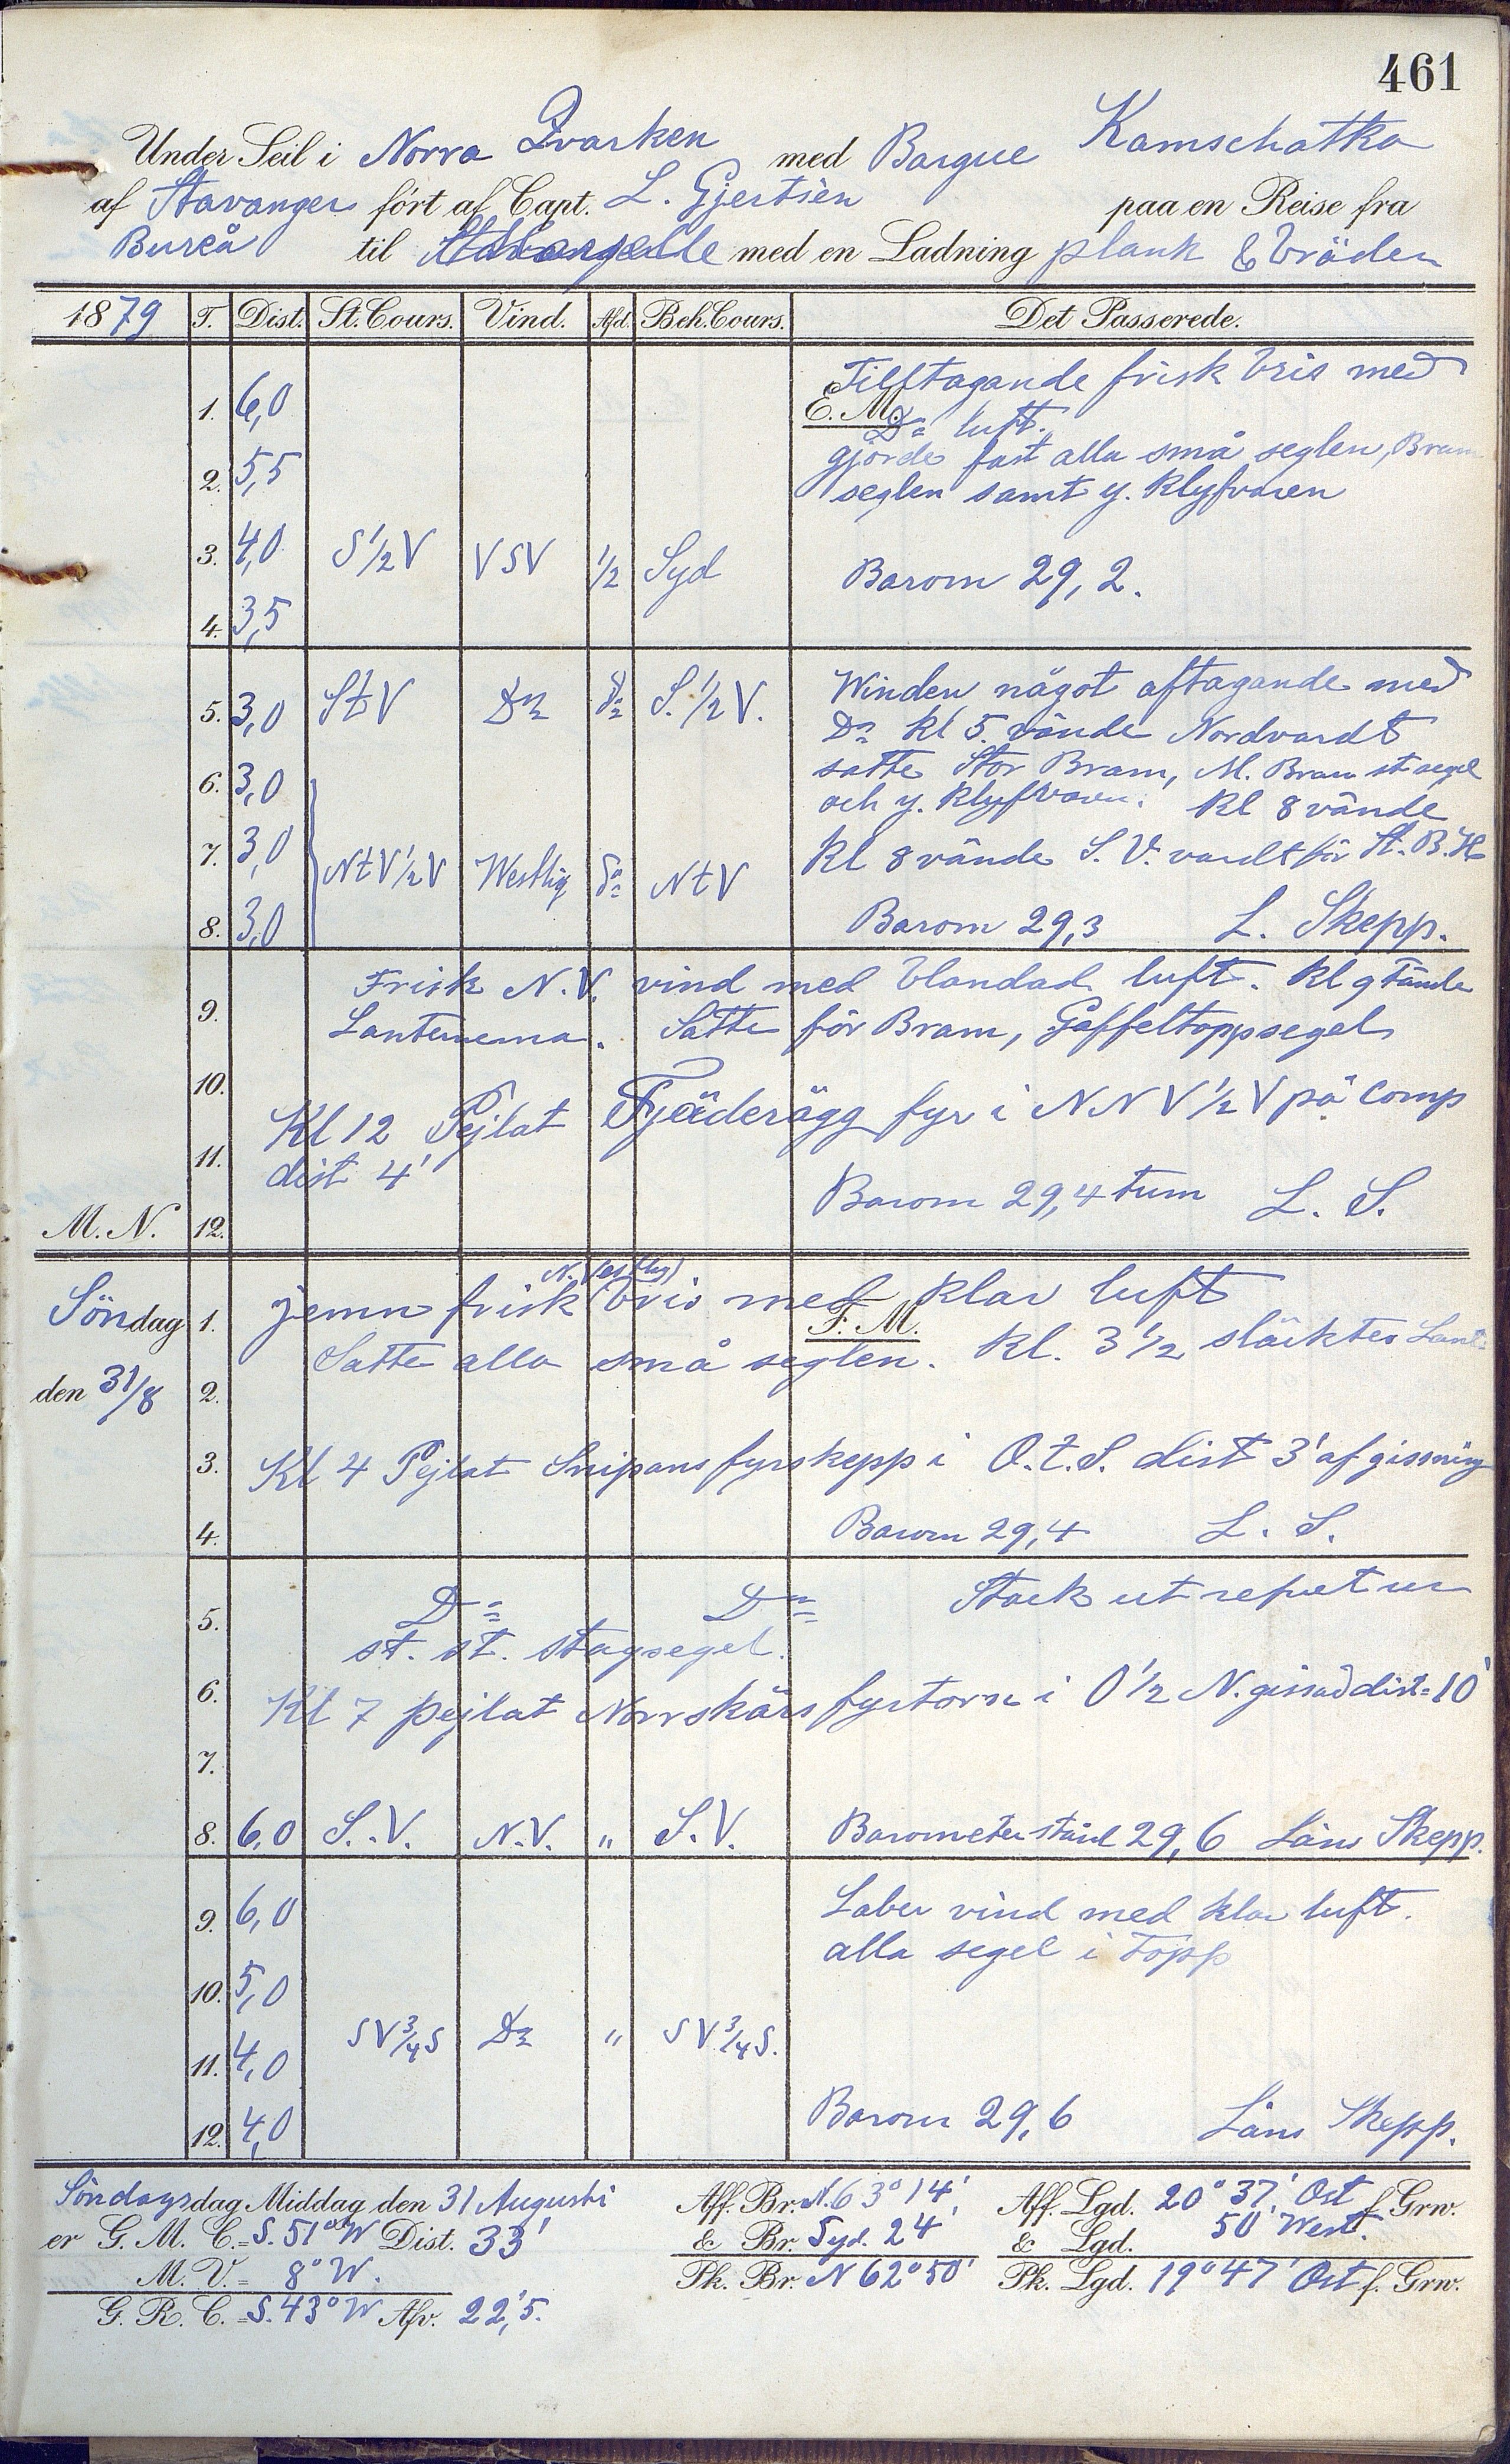 461
Under Seil i Norra Qvarken med Barque Kamschatka
af Stavanger ført af Capt. L. Gjertsen paa en Reise fra
Bureå til med en Ladning plank & bräder
1879 T. Dist. St. Cours. Vind. Afd. Beh. Cours. Det Passerede.
Tilltagande frisk bris med
1. 6,0 E. M. Do luft.
gjorde fast alla små seglen, Bram
2. 5,5 seglen samt y. Klyfvaren
3. 4,0 S 1/2 V VSV 1/2 Syd Barom 29,2.
4. 3,5
5. 3,0 StV Do do S. 1/2 V. Winden något aftagande med
Do kl 5. vände Nordvardt
6. 3,0 satte Stor Bram, M. Bram st segel
och y. Klyfvaren. Kl 8 vände
7. 3,0 NtV 1/2 V Westlig do NtV Kl 8 vände S. V. vardt för St. B. H
8. 3,0 Barom 29,3 L. Skepp.
Frisk N.V. vind med blandad luft. Kl 9 tände
9. Lanternerna. Satte för Bram, Gaffeltoppsegel
10. Kl 12 Pejlat Fjäderägg fyr i NNV 1/2 V på Comp
11. dist 4'
Barom 29,4 tum L. S.
M. N. 12.
N. Vestlig
Söndag 1. jemn frisk bris med klar luft
F. M.
Satte alla små seglen. Kl. 3 1/2 släcktes Lant
den 31/8 2.
3. Kl 4 Pejlat Snipans fyrskepp i O.t.S. dist 3' af gissning
4. Barom 29,4 L. S.
5. Do Do Stack ut refvet ur
st. st. stagsegel.
6. Kl 7 pejlat Norrskärs fyrtorn i O 1/2 N. gissad dist = 10'
7.
8. 6,0 S.V. N.V. " S.V. Barometerstånd 29,6 Läns Skepp.
9. 6,0 Laber vind med klar luft.
alla segel i Topp
10. 5,0
11. 4,0 SV 3/4 S Do " SV 3/4 S.
12. 4,0 Barom 29,6 Läns Skepp.
Söndagsdag Middag den 31 Augusti Aff. Br. N. 63° 14' Aff. Lgd. 20° 37' Ost f. Grw.
er G. M. C. = S. 51° W Dist. 33' & Br. Syd. 24' & Lgd. 50' West.
M. V. = 8° W. Pk. Br. N 62° 50' Pk. Lgd. 19° 47' Ost f. Grw.
G. R. C. = S. 43° W Afv. 22,'5.